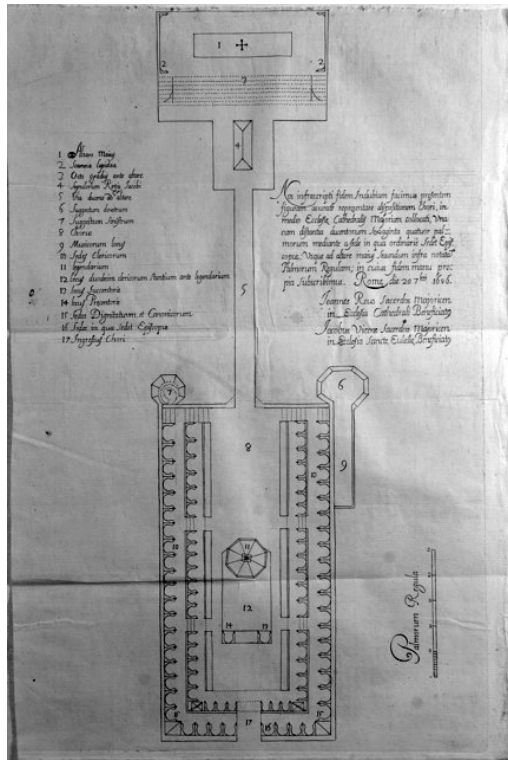 1 Altare Maius
2 Scamnia lignea
3 Octo gradus ante altare
4 Sepulcrum Regis Jacobi
5 Via ducens ad altare
6 Suggestum dextrum
7 Suggestum Sinistrum
8 Chorus
9 Musicorum locus
10 Sedes Clericorum
11 legendarium
12 locus duodecim clericorum stantium ante legendarium
13 locus Succentoris
14 locus Precentoris
15 Sedes Dignitatum et Canonicorum
16 Sedes in qua Sedet Episcopus
17 Ingressus Chori
Nos infrascripti fidem Indubiam facimus presentem
figuram representare dispositionem Chori, in
medio Ecclesiæ Cathedralis Majoricen collocati, Una
cum distantia ducentorum quatuor pal-
morum mediante a sede in qua ordinarie Sedet Epis-
copus Usque ad altare maius Secundum infra notatam
Palmorum Regulam; in cuius fidem manu pro-
pria Subscribimus. Rome die 20 7bris 1696.
Joannes Reus Sacerdos Majoricen
in Ecclesia Cathedrali Beneficiatus
Jacobus Sacerdos Majoricen
in Ecclesia Sancte Eulalie Beneficiatus
1
2
2
3
4
5
6
7
8
9
10
11
12
14
13
15
16
17
Palmorum Regula